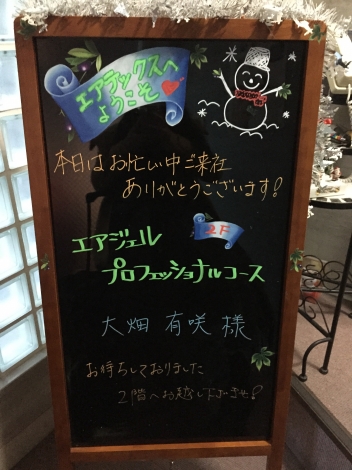 エアテックスへ
ようこそ
本日はお忙しい中ご来社
ありがとうございます!
エアジェル 2F
プロフェッショナルコース
大畑 有咲 様
お待ちしておりました
2階へお越し下さいませ!